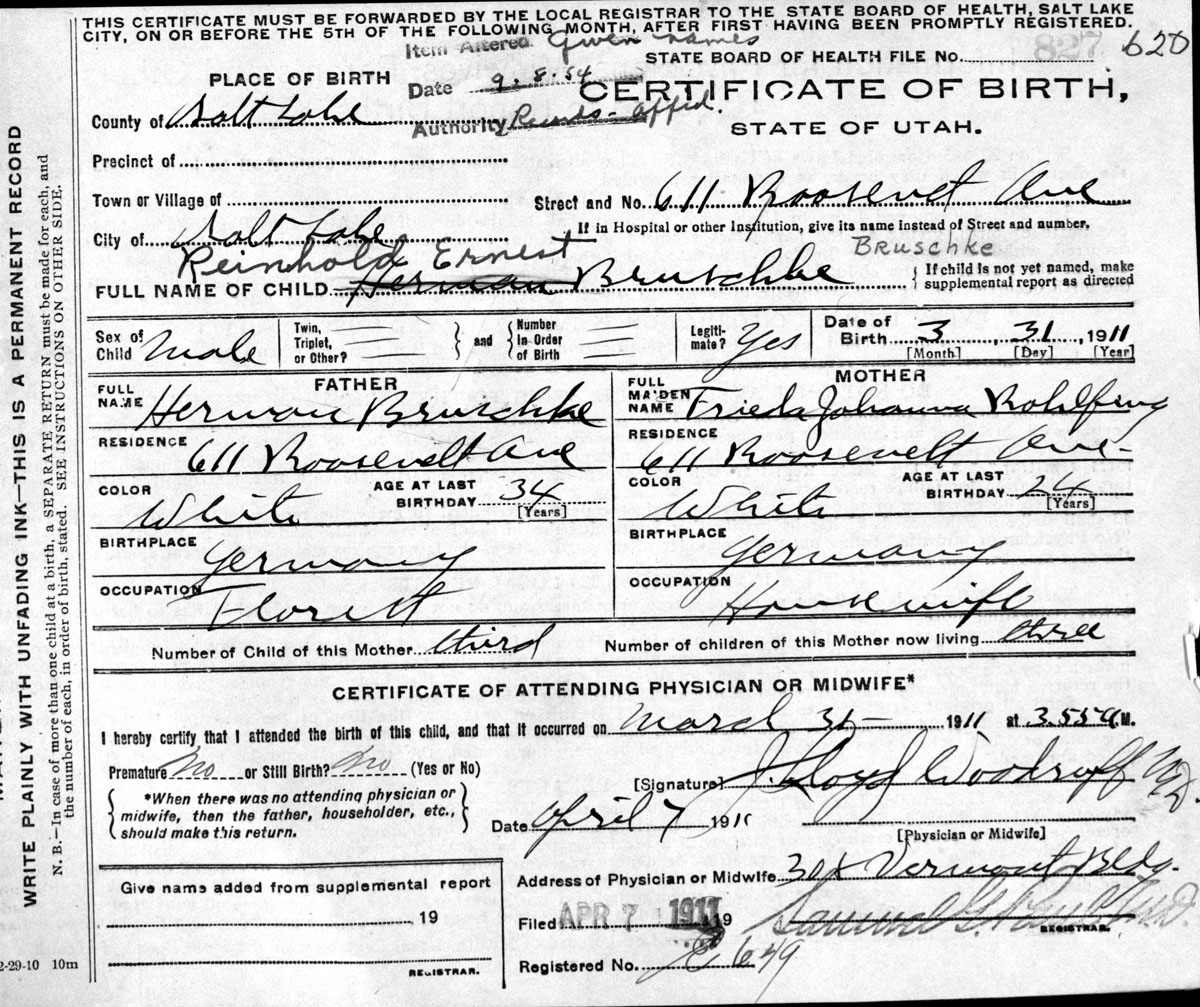 THIS CERTIFICATE MUST BE FORWARDED BY THE LOCAL REGISTRAR TO THE STATE BOARD OF HEALTH, SALT LAKE
CITY, ON OR BEFORE THE 5TH OF THE FOLLOWING MONTH, AFTER FIRST HAVING BEEN PROMPTLY REGISTERED.
Item Altered Given names
STATE BOARD OF HEALTH FILE No. 827 620
PLACE OF BIRTH
Date 9-8-54
CERTIFICATE OF BIRTH,
County of Salt Lake
Authority Records - Affid.
STATE OF UTAH.
Precinct of
Town or Village of
Street and No. 611 Roosevelt Ave
City of Salt Lake
If in Hospital or other Institution, give its name instead of Street and number.
Reinhold Ernest
Bruschke
FULL NAME OF CHILD Herman Bruschke
If child is not yet named, make
supplemental report as directed
Sex of
Child Male
Twin,
Triplet,
or Other?
and
Number
In Order
of Birth
Legiti-
mate? Yes
Date of
Birth 3, 31, 1911
[Month] [Day] [Year]
FATHER
FULL
NAME Herman Bruschke
RESIDENCE
611 Roosevelt Ave
COLOR
White
AGE AT LAST
BIRTHDAY 34
[Years]
BIRTHPLACE
Germany
OCCUPATION
Florist
MOTHER
FULL
MAIDEN
NAME Frieda Johanna Rohlfing
RESIDENCE
611 Roosevelt Ave-
COLOR
White
AGE AT LAST
BIRTHDAY 24
[Years]
BIRTHPLACE
Germany
OCCUPATION
Housewife
Number of Child of this Mother third
Number of children of this Mother now living three
CERTIFICATE OF ATTENDING PHYSICIAN OR MIDWIFE*
I hereby certify that I attended the birth of this child, and that it occurred on March 31- 1911 at 3.55 a.M.
Premature No or Still Birth? No (Yes or No)
[Signature] J. Lloyd Woodruff M.D.
*When there was no attending physician or
midwife, then the father, householder, etc.,
should make this return.
Date April 7 1911
[Physician or Midwife]
Give name added from supplemental report
19
REGISTRAR.
Address of Physician or Midwife Vermont Bldg.
Filed APR 7 1911 19
REGISTRAR.
Registered No. 649
2-29-10 10m
WRITE PLAINLY WITH UNFADING INK—THIS IS A PERMANENT RECORD
N. B.—In case of more than one child at a birth, a SEPARATE RETURN must be made for each, and
the number of each, in order of birth, stated. SEE INSTRUCTIONS ON OTHER SIDE.